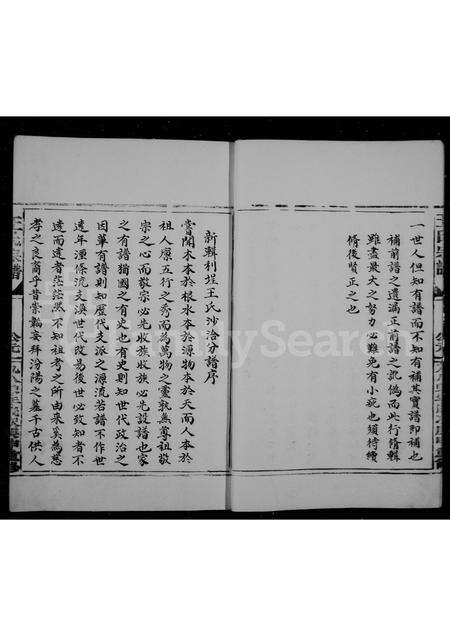 一世人但知有譜而不知有補其實譜即補也
補前譜之遺漏正前譜之訛偽而此行脩輯
雖盡最大之努力必難免有小疵也須待續
脩後賢正之也
新輯利埕王氏沙洛分譜序
嘗聞木本於根水本於源物本於天而人本於
祖人原五行之秀而為萬物之靈孰無尊祖敬
宗之心而敬宗必先收族收族必先設譜也家
之有譜猶國之有史也有史則知世代政治之
因革有譜則知歷代支派之源流若譜不作世
遠年湮條流支渙世代改易後世必致知者不
遺而遺者茫茫然不知祖考之所由來奚為慈
孝之良裔乎昔崇韜妄拜汾陽之墓千古供人
王氏宗譜